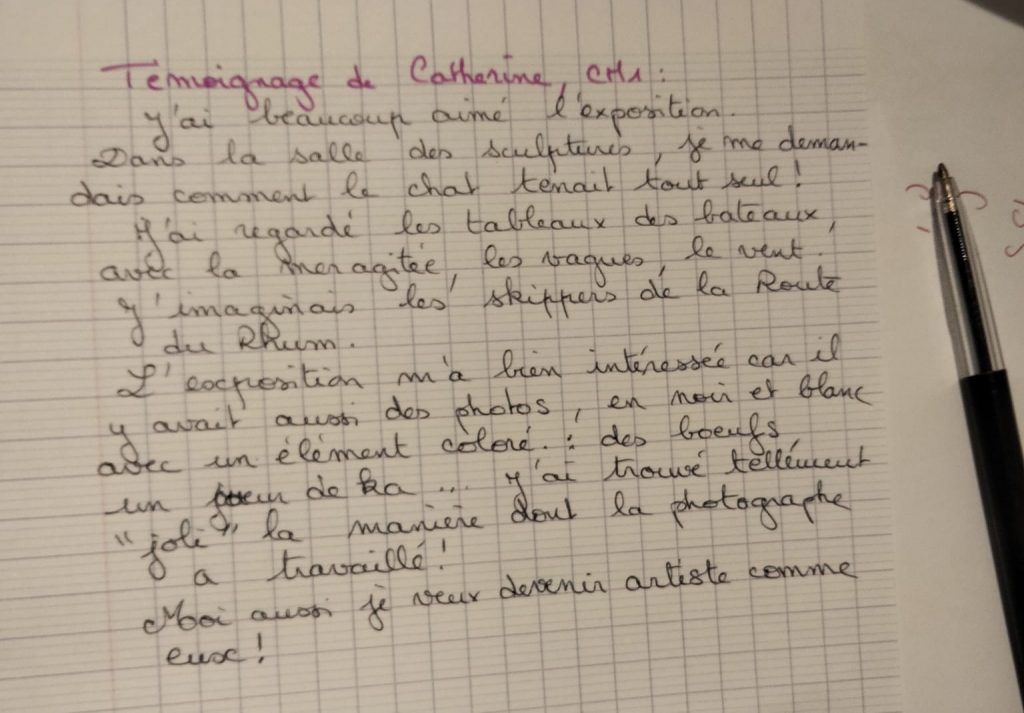 Témoignage de Catherine, CM1 :
J'ai beaucoup aimé l'exposition.
Dans la salle des sculptures, je me deman-
dais comment le chat tenait tout seul !
J'ai regardé les tableaux des bateaux,
avec la mer agitée, les vagues, le vent.
J'imaginais les skippers de la Route
du Rhum.
L'exposition m'a bien intéressée car il
y avait aussi des photos, en noir et blanc
avec un élément coloré : des boeufs
un joueur de ka ... J'ai trouvé tellement
"joli" la manière dont la photographe
a travaillé !
Moi aussi je veux devenir artiste comme
eux !